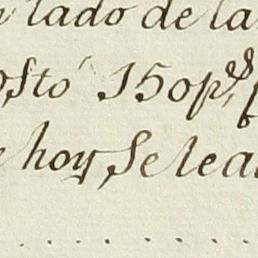 lado de la
ostó 150 p.s
hoy, se lea